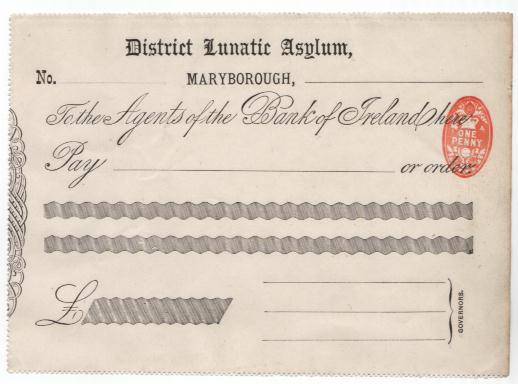 District Lunatic Asylum,
No. MARYBOROUGH,
To the Agents of the Bank of Ireland here
ONE
PENNY
Pay or order.
£
GOVERNORS.